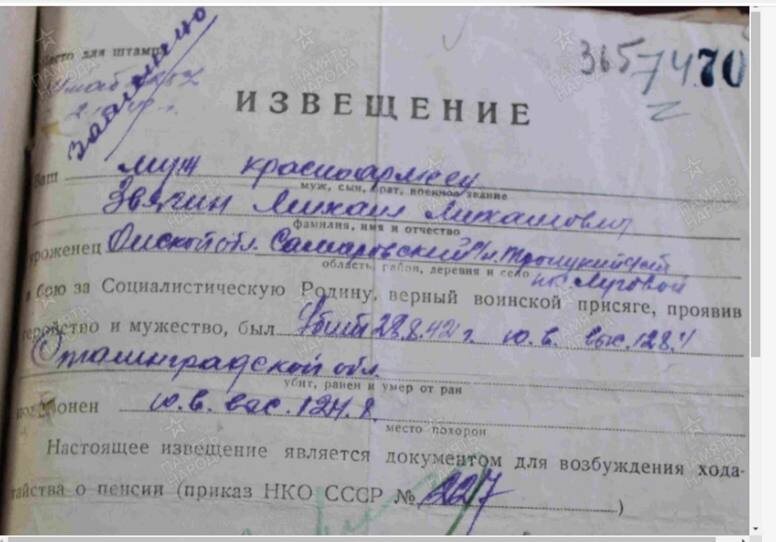 Место для штампа
365 7470
ИЗВЕЩЕНИЕ
Ваш муж красноармеец
муж, сын, брат, военное звание
Звягин Михаил Михайлович
фамилия, имя и отчество
уроженец Омской обл. Самаровский р/н
область, район, деревня и село
пос. Луговой
в бою за Социалистическую Родину, верный воинской присяге, проявив
геройство и мужество, был убит 28.8.42 г. ю. в. выс. 128.4
Сталинградской обл
убит, ранен и умер от ран
похоронен ю. в. выс. 124.8.
место похорон
Настоящее извещение является документом для возбуждения хода-
тайства о пенсии (приказ НКО СССР № 227)
ПАМЯТЬ НАРОДА